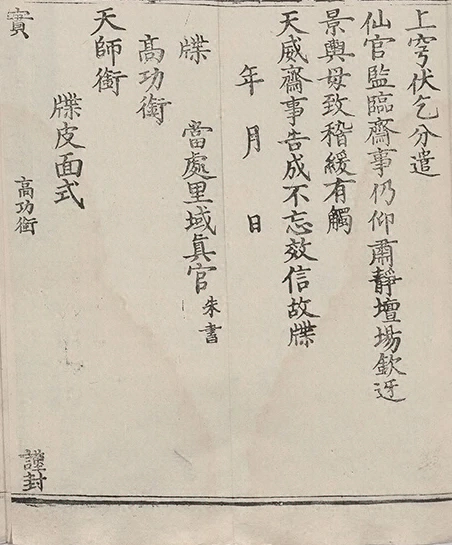 上穹伏乞分遣
仙官監臨齋事仍仰肅靜壇場欽迓
景輿毋致稽緩有觸
天威齋事告成不忘效信故牒
年 月 日
牒 當處里域眞官 朱書
高功銜
天師銜
牒皮面式
高功銜 謹封
實